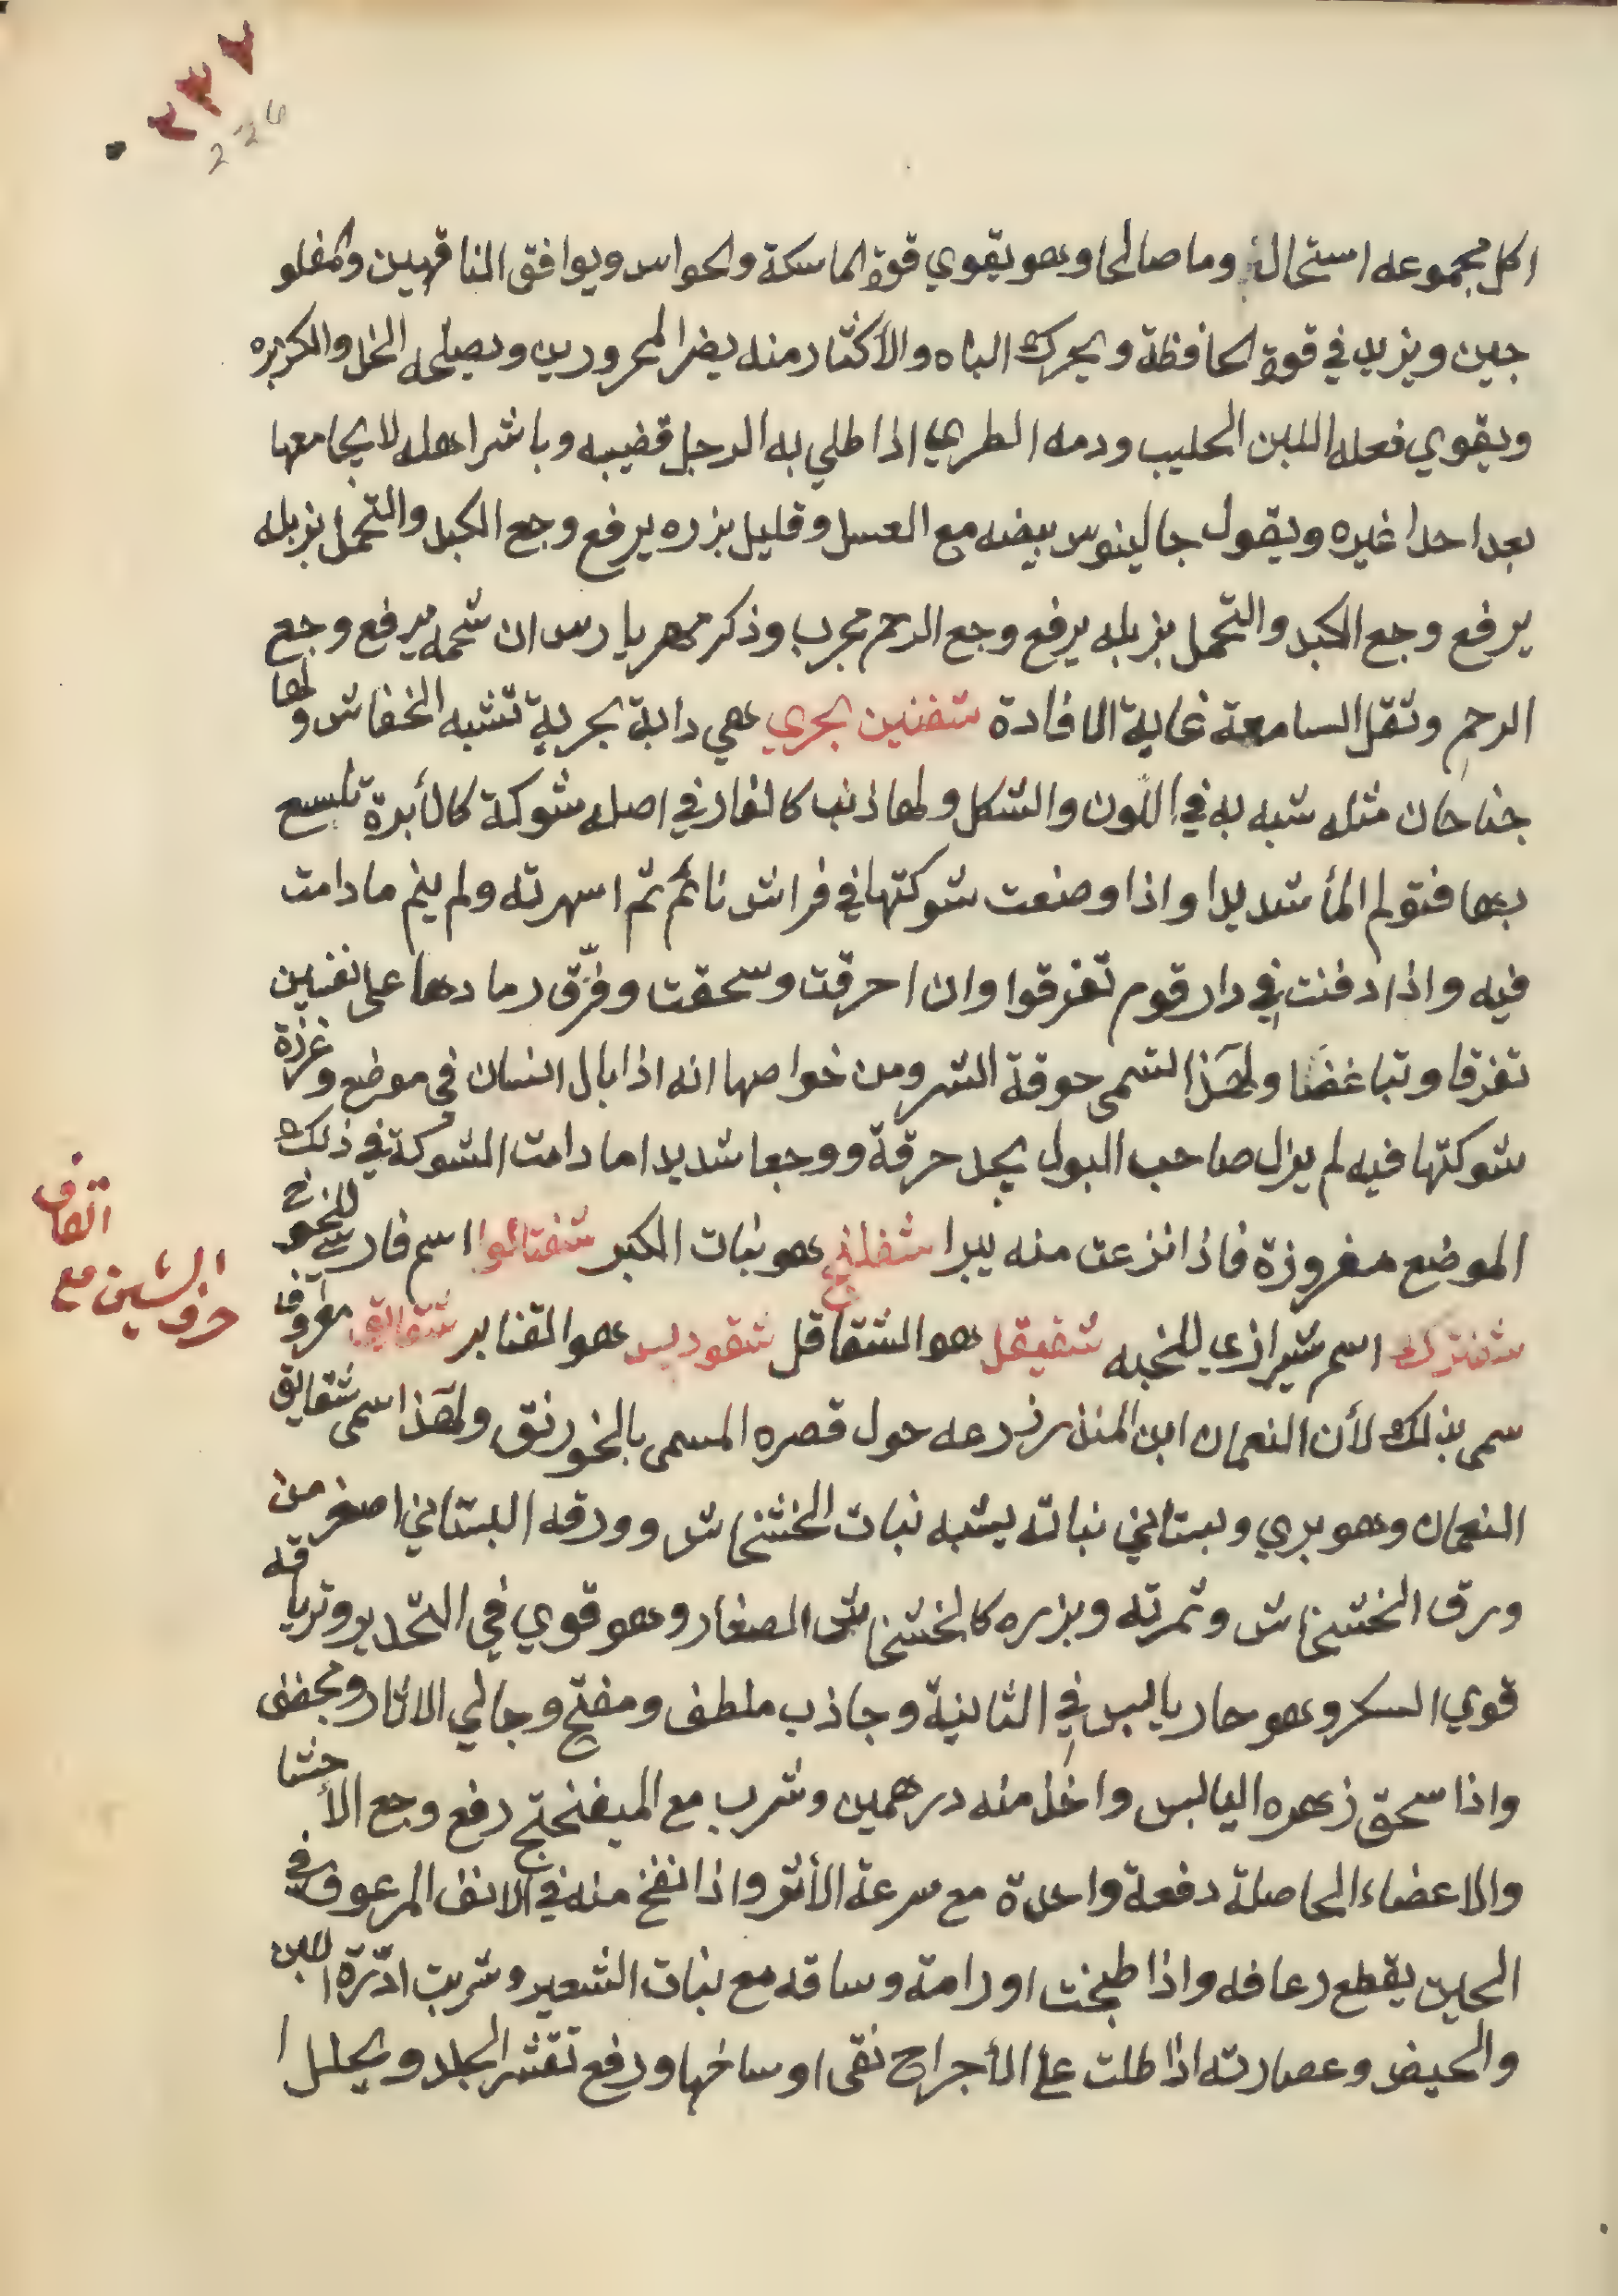 ٢٣٧
226
اكل مجموعه استحال دوما صالحا وهو يقوي قوة الماسكة والحواس ويوافق الناقهين والمفلو
جين ويزيد في قوة الحافظة ويحرك الباه والأكثار منه يضر المحرورين ويصلحه الخل والكزبره
ويقوي فعله اللبن الحليب ودمه الطري اذا طلي به الرجل قضيبه وباشر اهله لا يجامعها
بعد احدا غيره ويقول جالينوس بيضه مع العسل وقليل بزره يرفع وجع الكبد والتحمل بزبله
يرفع وجع الكبد والتحمل بزبله يرفع وجع الرحم مجرب وذكر مهريارس ان شحمه يرفع وجع
الرحم وثقل السامعة غاية الافادة شفنين بحري هي دابة بحرية تشبه الخفاش ولها
جناحان مثله شبه به في اللون والشكل ولها ذنب كالفار في اصله شوكة كالأبرة تلسع
بها فتولم المأ شديدا واذا وضعت شوكتها في فراش نائم ثم اسهرته ولم ينم مادامت
فيه واذا دفنت في دار قوم تفرقوا وان احرقت وسحقت وفرّق رمادها على نفسين
تفرقا وتباغضا ولهذا تسمى حوقة الشر ومن خواصها انه اذا بال انسان في موضع وغرزة
شوكتها فيه لم يزل صاحب البول يجد حرقة ووجعا شديدا ما دامت الشوكة في ذلك
الموضع مغروزة فاذا نزعت منه يبرا شفلح هو نبات الكبر شفتالوا اسم فارسي للخوخ
شفترك اسم شيرازي للخبه شفيقل هو الشقاقل شقوديس هو القنابر شقايق معروف
سمى بذلك لأن النعمان ابن المنذر زرعه حول قصره المسمى بالخورنق ولهذا سمى شقايق
النعمان وهو بري وبستاني نباته يشبه نبات الخشخاش وورقه البستاني اصغر من
ورق الخشخاش وثمرته وبزره كالخشخاش الصغار وهو قوي في التخدير وترياقه
قوي السكر وهو حار يابس في الثانية وجاذب ملطف ومفتح وجالي الاثار ومجفف
واذا سحق زهره اليابس واخذ منه درهمين وشرب مع الميفختج رفع وجع الأحشا
والاعضاء الحاصلة دفعة واحدة مع سرعة الأثر واذا نفخ منه في الانف المرعوف في
الحين يقطع رعافه واذا طبخت اورامة وساقه مع نبات الشعير وشربت ادّرة اللبن
والحيض وعصارته اذا طلت على الأجراح نقى اوساخها ورفع تقشر الجلد ويحلل ا
اتفاف
حرف الشين مع